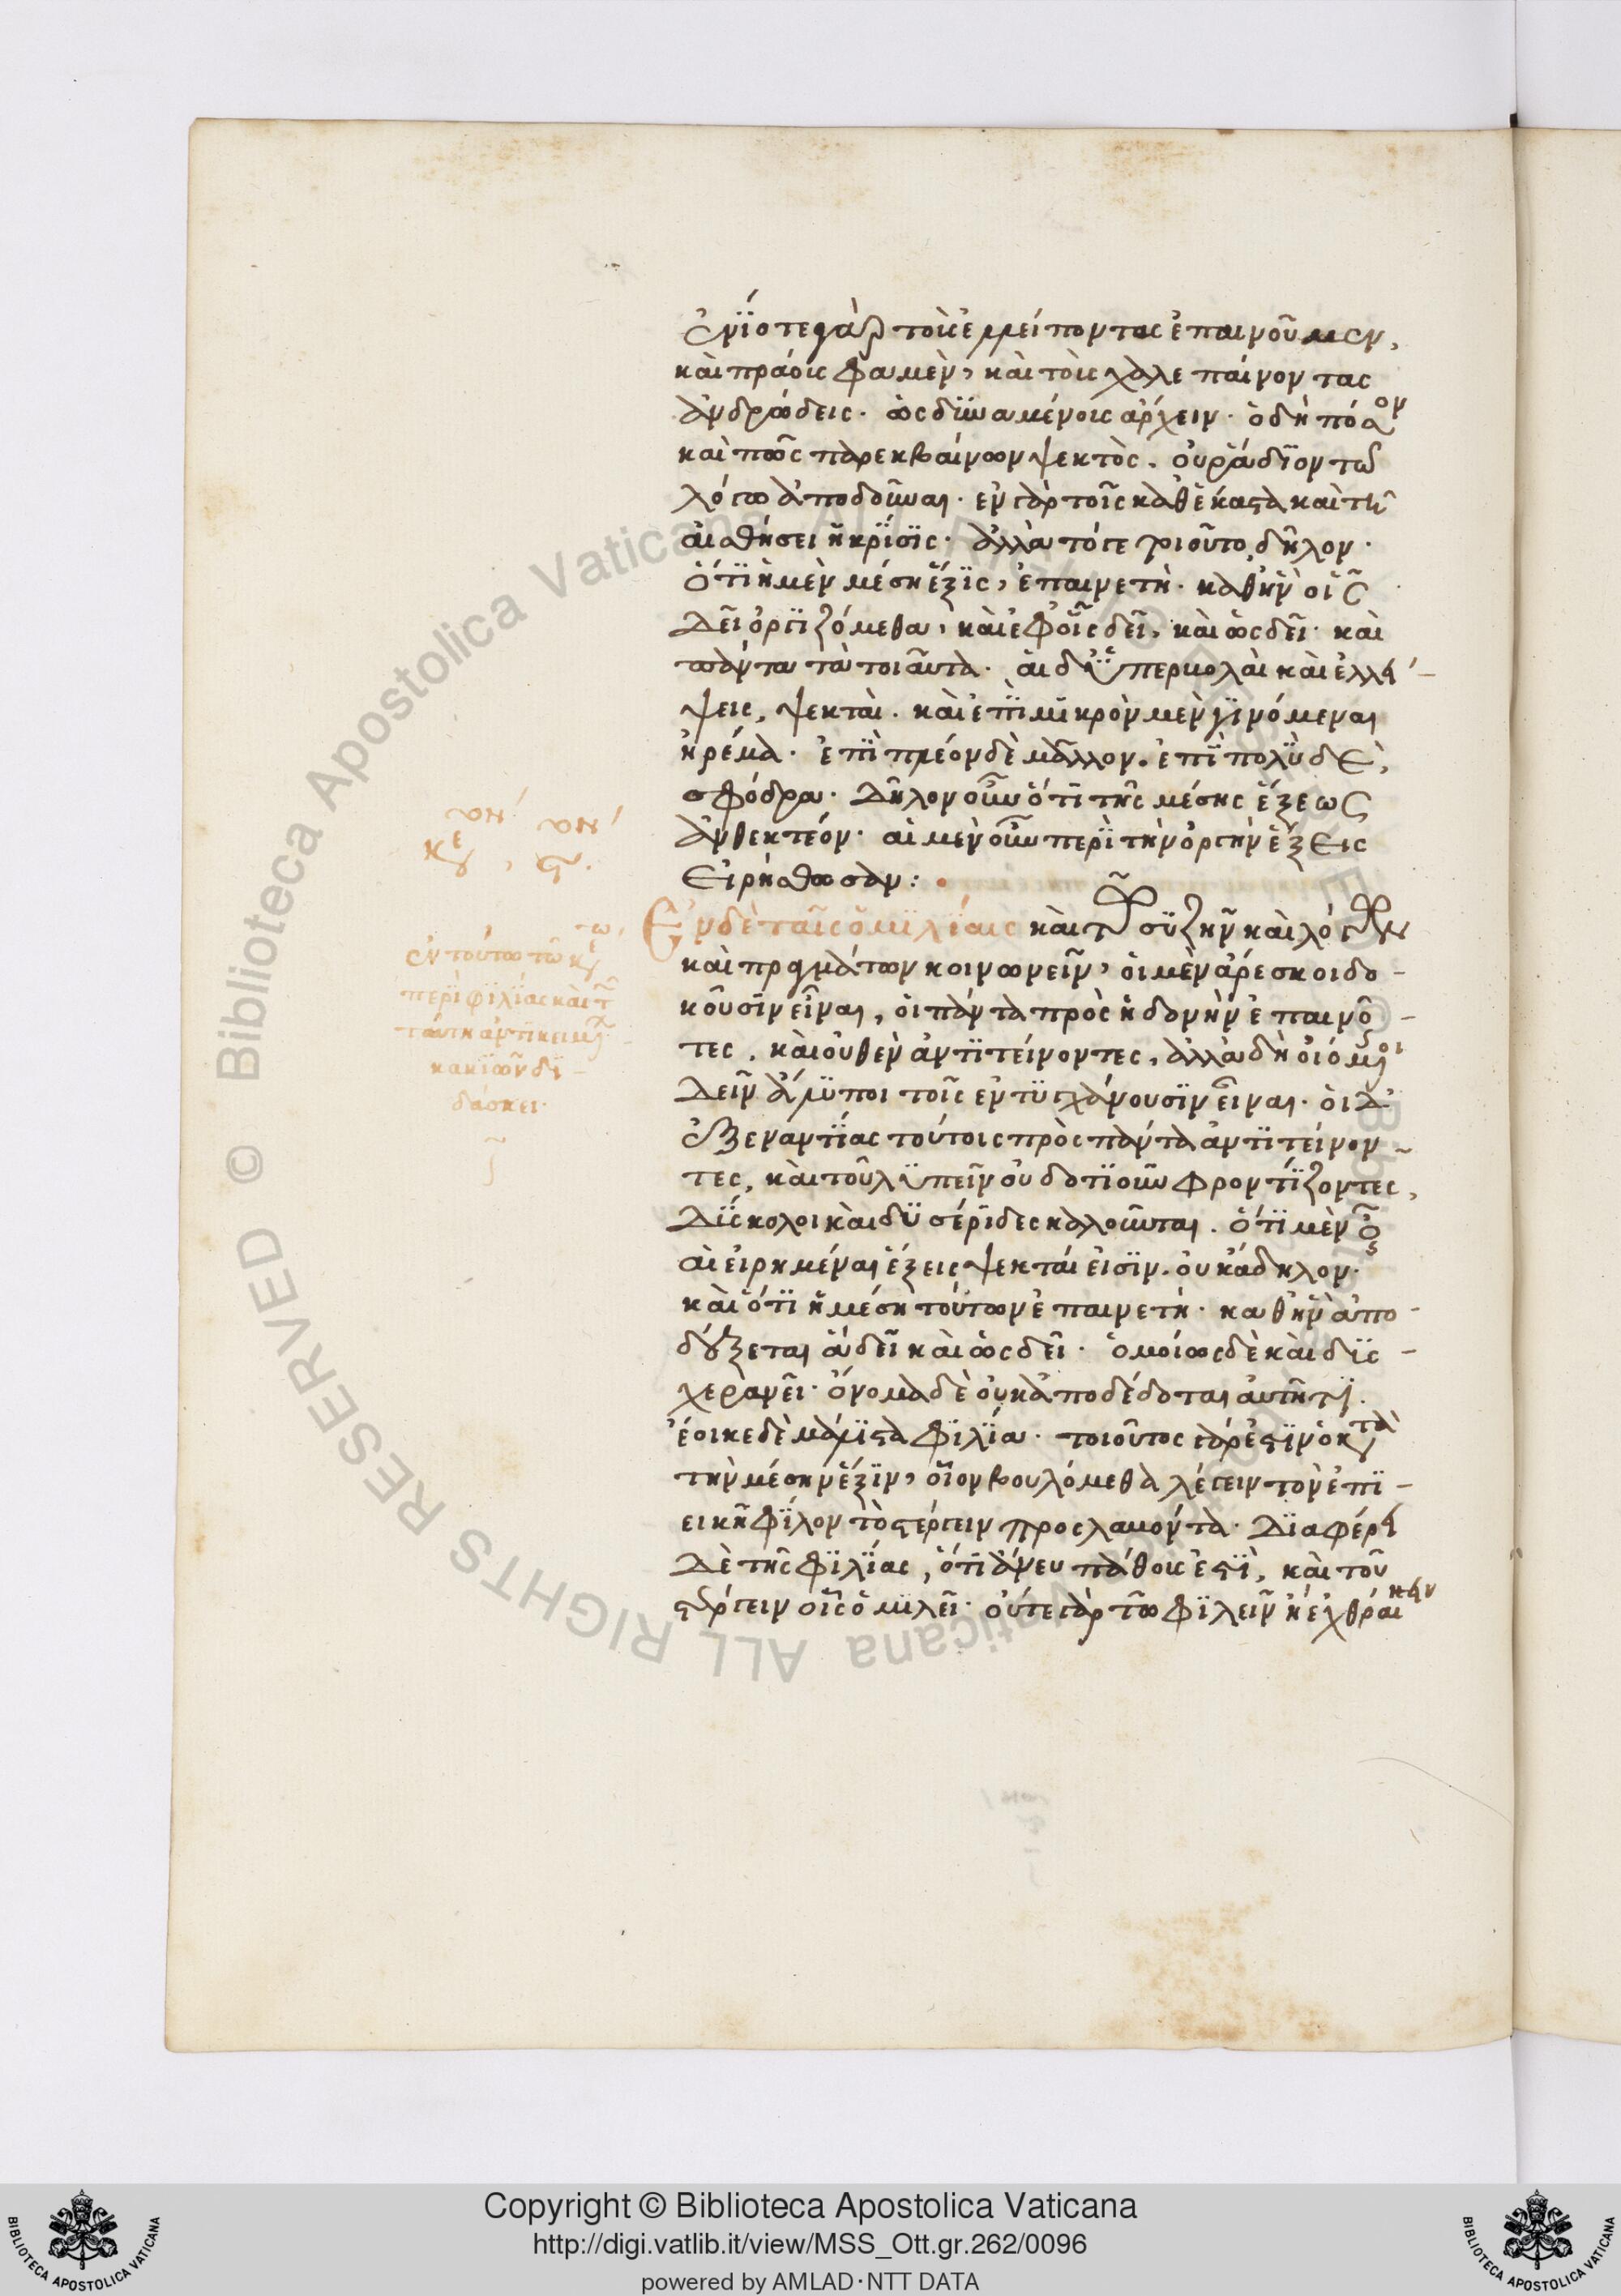 ἐνίοτε γὰρ τοὺς ἐλλείποντας ἐπαινοῦμεν,
καὶ πράους φαμὲν, καὶ τοὺς χαλεπαίνοντας
ἀνδρώδεις· ὡς δυναμένους ἄρχειν· ὁ δὴ πόσον
καὶ πῶς παρεκβαίνων ψεκτὸς, οὐ ῥάδιον τῶ
λόγω ἀποδοῦναι· ἐν γὰρ τοῖς καθέκαστα καὶ τῆ
αἰσθήσει ἡ κρίσις· ἀλλὰ τό γε τοιοῦτο δῆλον·
ὅτι ἡ μὲν μέση ἕξις, ἐπαινετὴ· καθ' ἣν οἷς
δεῖ ὀργιζόμεθα, καὶ ἐφ' οἷς δεῖ, καὶ ὡς δεῖ· καὶ
πάντα τὰ τοιαῦτα· αἱ δ' ὑπερβολαὶ καὶ ἐλλεί-
ψεις, ψεκταὶ· καὶ ἐπὶ μικρὸν μὲν γινόμεναι
ἠρέμα· ἐπὶ πλέον δὲ μᾶλλον· ἐπὶ πολὺ δὲ,
σφόδρα· δῆλον οὖν ὅτι τῆς μέσης ἕξεως
ἀνθεκτέον· αἱ μὲν οὖν περὶ τὴν ὀργὴν ἕξεις
εἰρήσθωσαν:
Ἐν δὲ ταῖς ὁμιλίαις καὶ τῶ συζῆν καὶ λόγων
καὶ πραγμάτων κοινωνεῖν, οἱ μὲν ἄρεσκοι δο-
κοῦσιν εἶναι, οἱ πάντα πρὸς ἡδονὴν ἐπαινοῦ-
τες, καὶ οὐθὲν ἀντιτείνοντες, ἀλλὰ δὴ οἰόμενοι
δεῖν ἄλυποι τοῖς ἐντυγχάνουσιν εἶναι· οἱ δ'
ἐξ ἐναντίας τούτοις πρὸς πάντα ἀντιτείνον-
τες, καὶ τοῦ λυπεῖν οὐδοτιοῦν φροντίζοντες,
δύσκολοι καὶ δυσέριδες καλοῦνται. ὅτι μὲν οὖν
αἱ εἰρημέναι ἕξεις ψεκταί εἰσιν, οὐκ ἄδηλον·
καὶ ὅτι ἡ μέση τούτων ἐπαινετὴ· καθ' ἣν ἀπο-
δέξεται ἃ δεῖ καὶ ὡς δεῖ· ὁμοίως δὲ καὶ δυς-
χερανεῖ· ὄνομα δὲ οὐκ ἀποδέδοται αὐτῆ τι·
ἔοικε δὲ μάλιστα φιλία· τοιοῦτος γάρ ἐστιν ὁ κατὰ
τὴν μέσην ἕξιν, οἷον βουλόμεθα λέγειν τὸν ἐπι-
εικῆ φίλον τὸ στέργειν προσλαβόντα· διαφέρει
δὲ τῆς φιλίας, ὅτι ἄνευ πάθους ἐστὶ, καὶ τοῦ
στέργειν οἷς ὁμιλεῖ· οὔτε γὰρ τῶ φιλεῖν ἢ ἐχθραί
ἐν τούτω τῶ
περὶ φιλίας καὶ τ
ταύτη ἀντικειμένων
κακιῶν δι-
δάσκει·
Copyright © Biblioteca Apostolica Vaticana
http://digi.vatlib.it/view/MSS_Ott.gr.262/0096
powered by AMLAD·NTT DATA
BIBLIOTECA APOSTOLICA VATICANA
BIBLIOTECA APOSTOLICA VATICANA
© Biblioteca Apostolica Vaticana ALL RIGHTS RESERVED